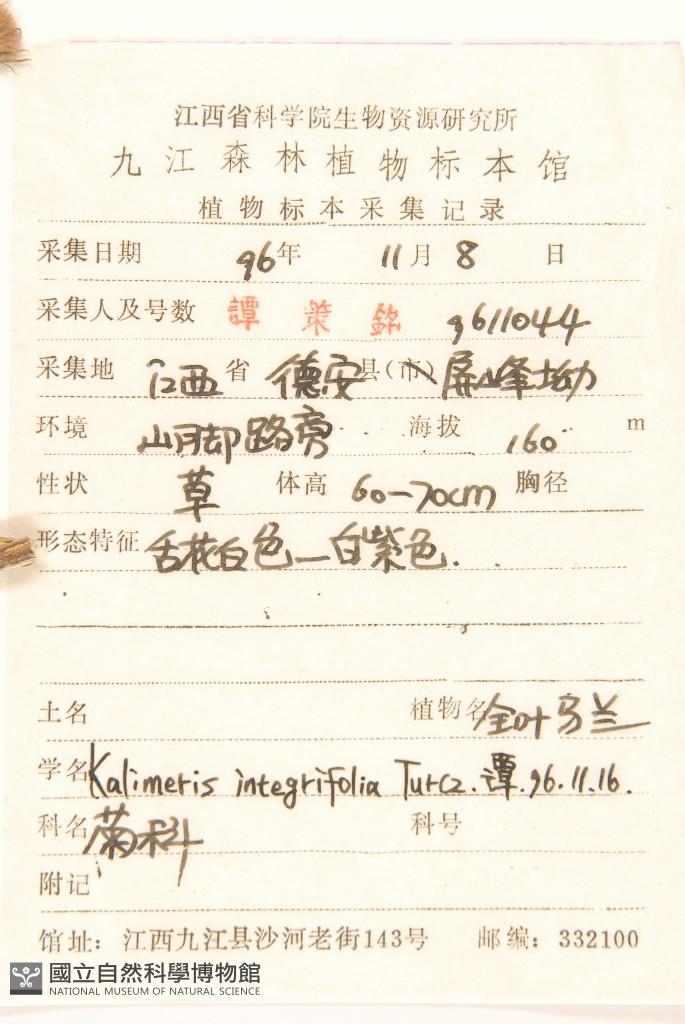 江西省科学院生物资源研究所
九江森林植物标本馆
植物标本采集记录
采集日期 96年 11月 8 日
采集人及号数 譚策銘 9611044
采集地 江西 省 德安 县(市) 屏峰坳
环境 山脚路旁 海拔 160 m
性状 草 体高 60—70cm 胸径
形态特征 舌花白色—白紫色.
土名 植物名 全叶马兰
学名 Kalimeris integrifolia Turcz. 譚.96.11.16.
科名 菊科 科号
附记
馆址: 江西九江县沙河老街143号 邮编: 332100
國立自然科學博物館
NATIONAL MUSEUM OF NATURAL SCIENCE